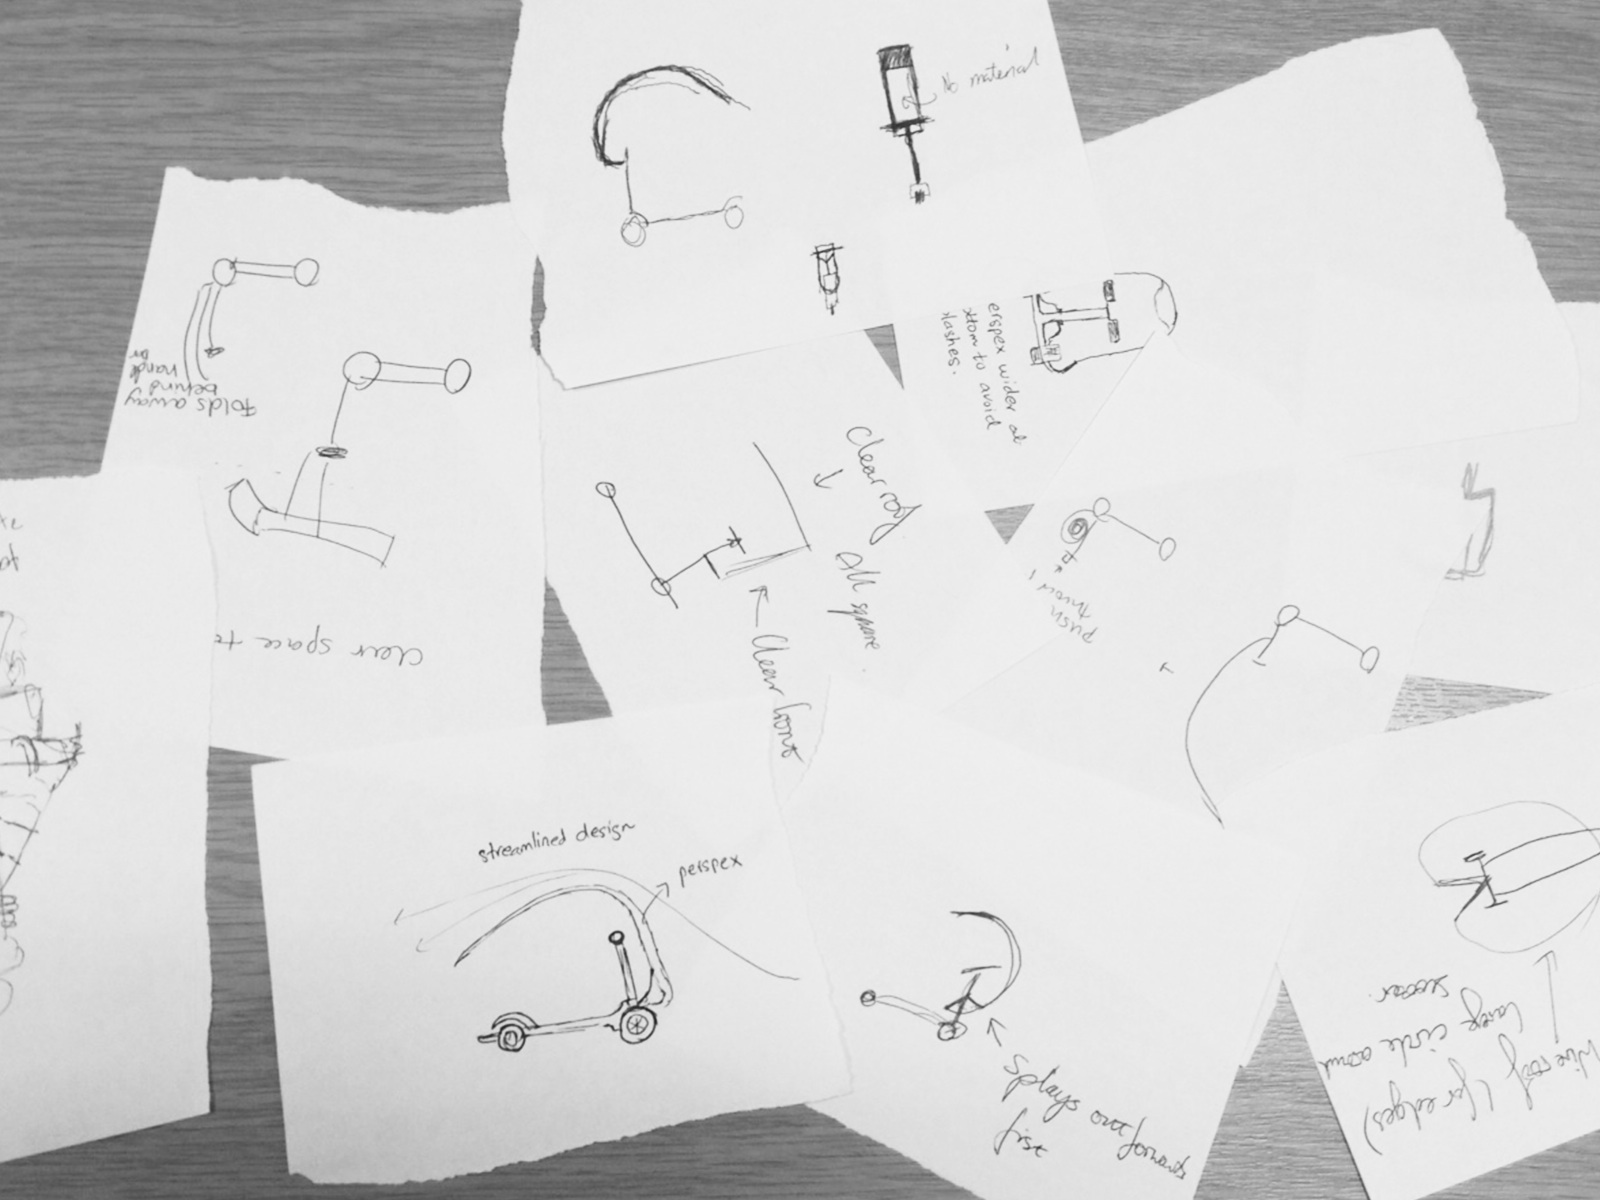 No material
folds away
behind
handle
bar
erspex wider at
ttom to avoid
lashes.
Clear roof
All square.
Clear front
clear space to
push
throu
streamlined design
perspex
Splays out forwards
first
Wire roof (for edges)
large circle around
scooter.